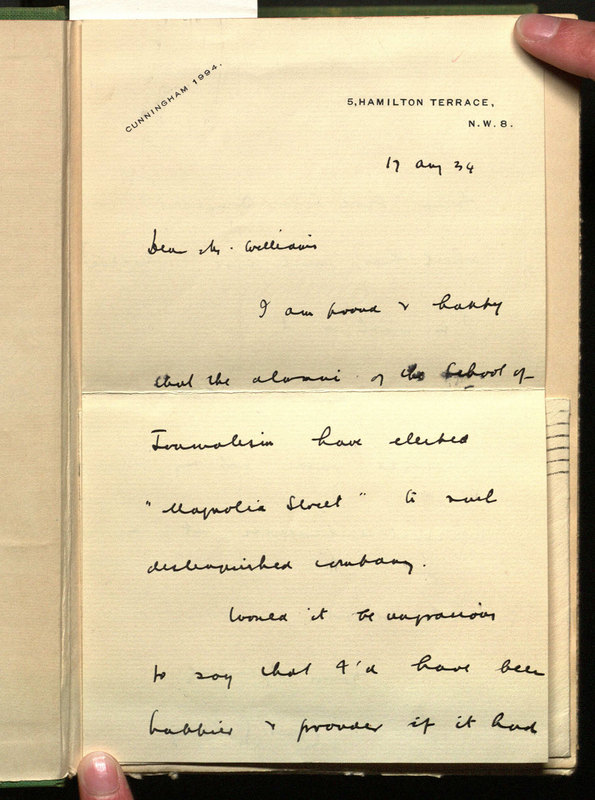 CUNNINGHAM 1994.
5, HAMILTON TERRACE,
N.W. 8.
17 Aug 34
Dear Mr. Williams
I am proud & happy
that the alumni of the School of
Journalism have elected
"Magnolia Street" to such
distinguished company.
Would it be ungracious
to say that I'd have been
happier & prouder if it had